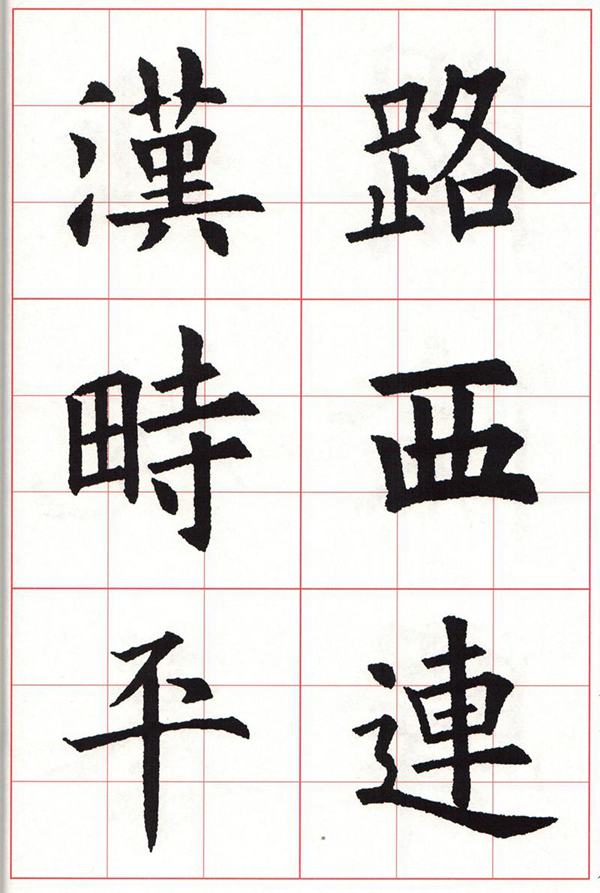 路西連
漢畤平